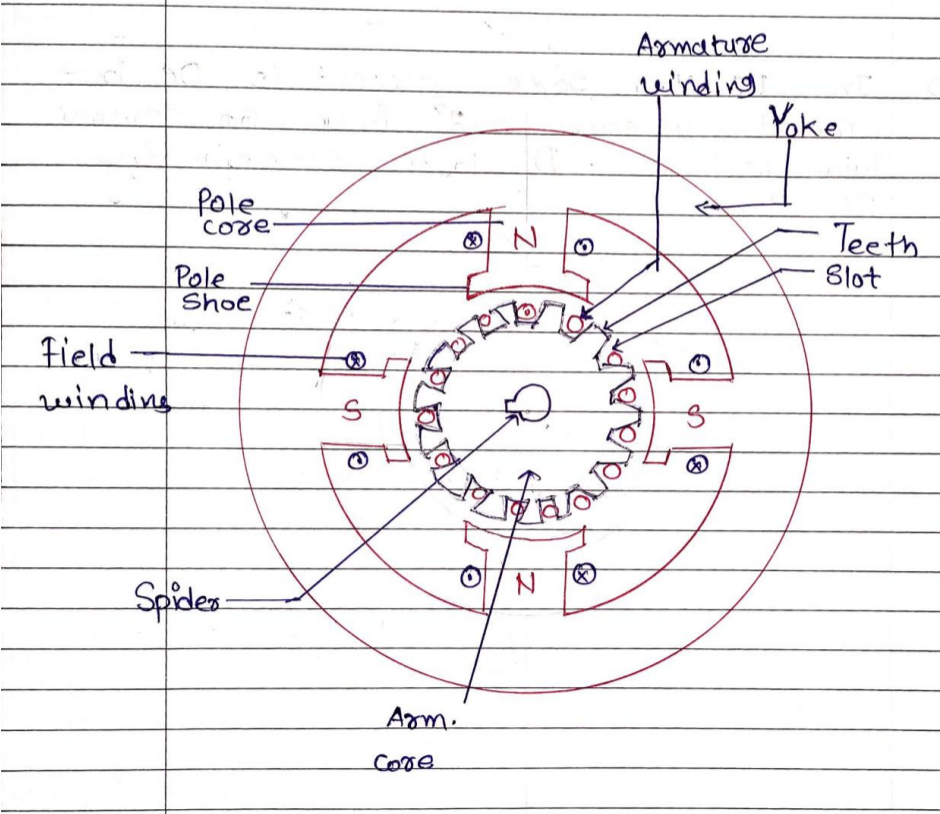 Armature
winding
Yoke
Pole
core
N
Teeth
Slot
Pole
Shoe
Field
winding
S
S
N
Spider
Arm.
Core